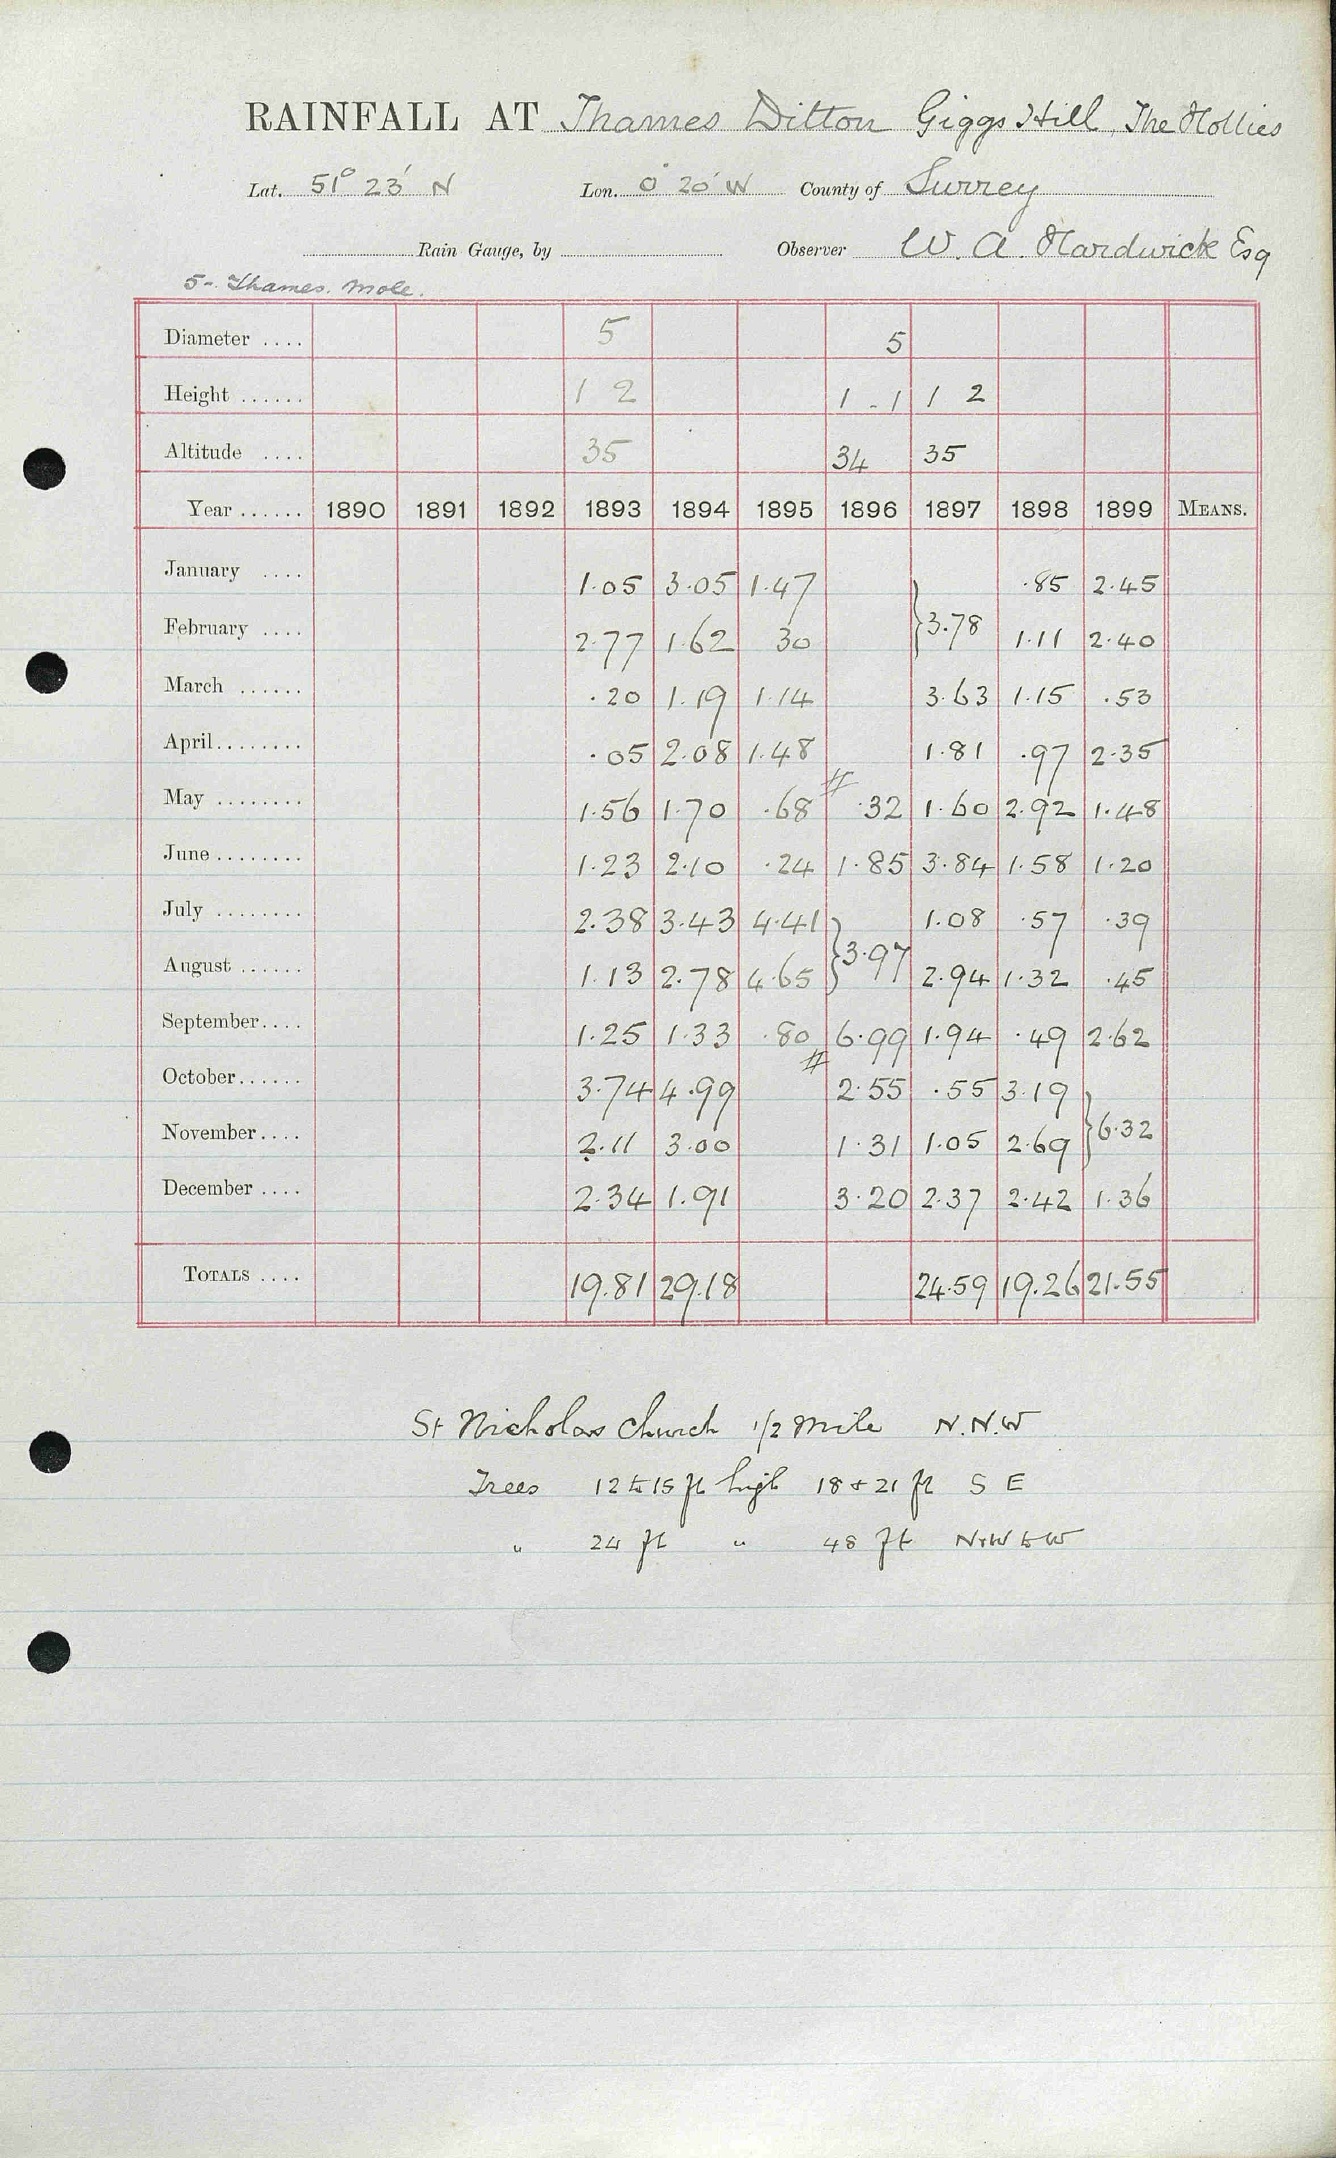 RAINFALL AT Thames Ditton Giggs Hill, The Hollies
Lat. 51° 23' N Lon. 0° 20' W County of Surrey
Rain Gauge, by Observer W. A. Hardwick Esq
5- Thames. Mole.
Diameter .... 5 5
Height ...... 1 2 1 - 1 1 2
Altitude .... 35 34 35
Year ...... 1890 1891 1892 1893 1894 1895 1896 1897 1898 1899 MEANS.
January .... 1.05 3.05 1.47 .85 2.45
} 3.78
February .... 2.77 1.62 30 1.11 2.40
March ...... .20 1.19 1.14 3.63 1.15 .53
April........ .05 2.08 1.48 1.81 .97 2.35
May ........ 1.56 1.70 .68 # .32 1.60 2.92 1.48
June ........ 1.23 2.10 .24 1.85 3.84 1.58 1.20
July ........ 2.38 3.43 4.41 1.08 .57 .39
} 3.97
August ...... 1.13 2.78 4.65 2.94 1.32 .45
September.... 1.25 1.33 .80 6.99 1.94 .49 2.62
October...... 3.74 4.99 # 2.55 .55 3.19
} 6.32
November.... 2.11 3.00 1.31 1.05 2.69
December .... 2.34 1.91 3.20 2.37 2.42 1.36
TOTALS .... 19.81 29.18 24.59 19.26 21.55
St Nicholas Church 1/2 mile N.N.W
Trees 12 to 15 ft high 18 & 21 ft S E
" 24 ft " 48 ft NxW to W